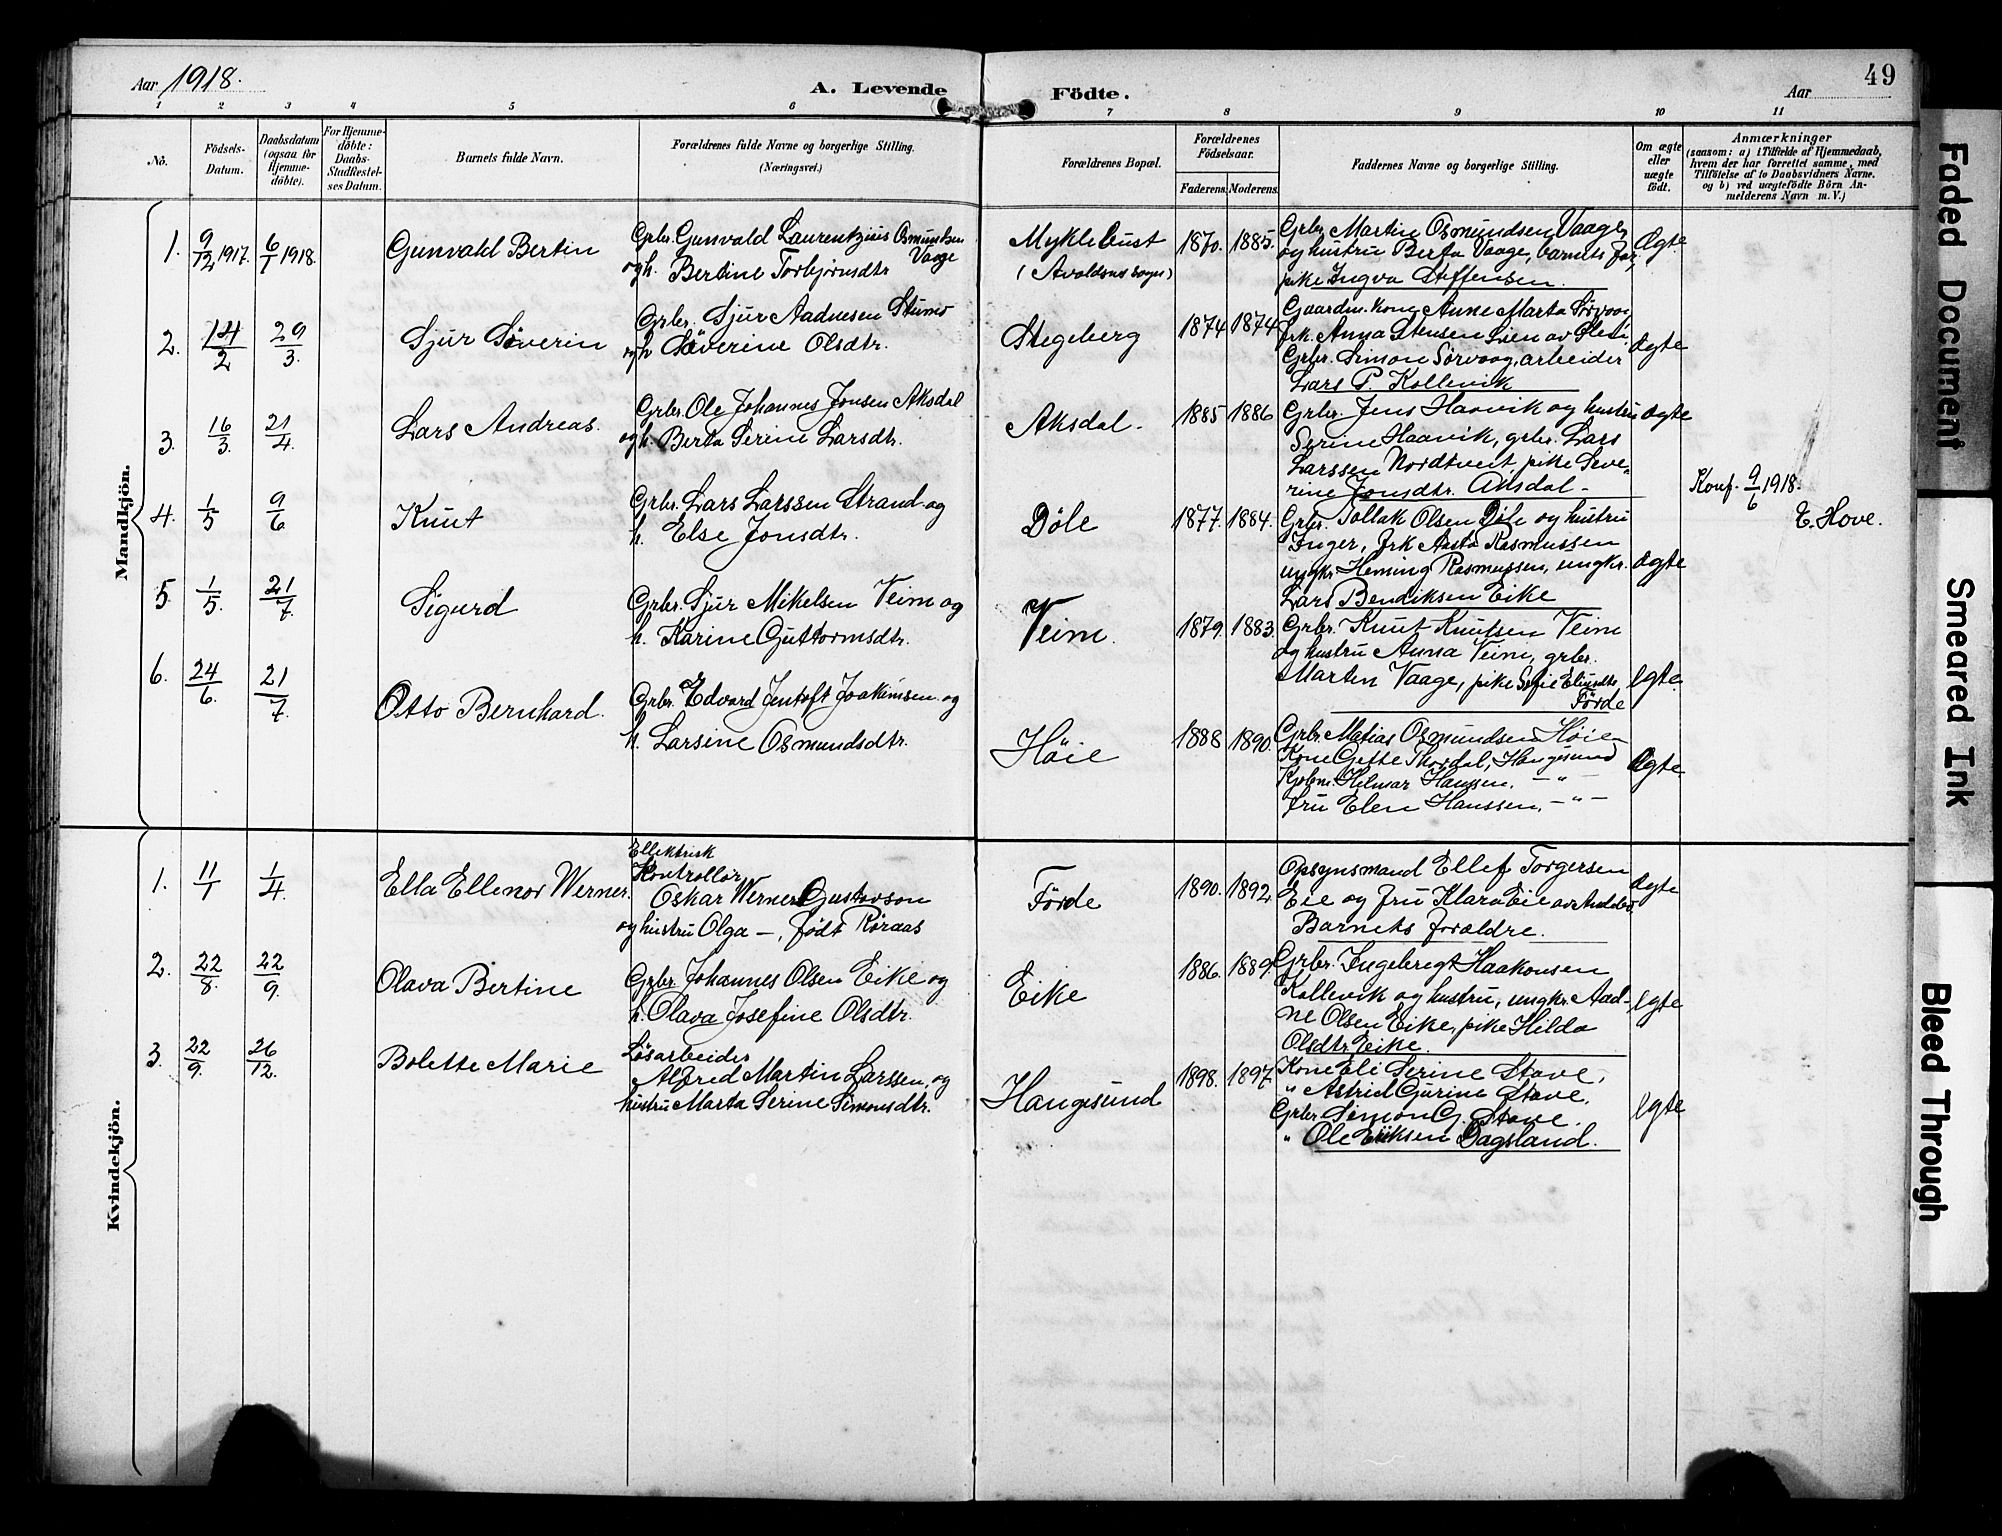 Aar 1918.
A. Levende Födte.
Aar
49
1 2 3 4 5 6 7 8 9 10 11
No.
Födsels-
Datum.
Daabsdatum
(ogsaa for
Hjemme-
döbte).
For Hjemme-
döbte:
Daabs-
Stadfestel-
ses Datum.
Barnets fulde Navn.
Forældrenes fulde Navne og borgerlige Stilling.
(Næringsvei.)
Forældrenes Bopæl.
Forældrenes
Födselsaar.
Faderens. Moderens.
Faddernes Navne og borgerlige Stilling.
Om ægte
eller
uægte
födt.
Anmærkninger
(saasom: a) i Tilfælde af Hjemmedaab,
hvem der har forrettet samme, med
Tilföielse af to Daabsvidners Navne.
og b) ved uægtefödte Börn An-
melderens Navn m. V.)
Mandkjön.
1. 9/12 1917. 6/1 1918. Gunvald Bertin
Grbr. Gunvald Laurentzius Osmundsen
Vaage
og h. Bertine Torbjörnsdtr
Myklebust
(Avaldsnes sogn)
1870. 1885.
Grbr. Martin Osmundsen Vaage,
og hustru Berta Vaage, barnets far,
pike Ingva Steffensen.
Ægte
2. 14/2 29/3 Sjur Söverin
Grbr. Sjur Aadnesen
og h Söverine Olsdtr.
Stegeberg
1874 1874
Gaardm. kone Anne Marta Sörvaag
frk. Anna Stensen Lien av Ölen,
Grbr. Simon Sörvaag, arbeider
Lars P. Kollevik
Ægte
3. 16/3. 21/4. Lars Andreas.
Grbr. Ole Johannes Jonsen Aksdal
og h. Berta Serine Larsdtr.
Aksdal.
1885 1886
Grbr. Jens Haavik og hustru
Serine Haavik, grbr. Lars
Larssen Nordtveit, pike Seve-
rine Jonsdtr. Aksdal
Ægte
4. 1/5 9/6 Knut
Grbr. Lars Larssen Strand og
h. Else Jonsdtr.
Döle
1877. 1884.
Grbr. Tollak Olsen Döle og hustru
Inger, frk Aasta Rasmussen
ungkr. Heming Rasmussen, ungkr.
Lars Bendiksen Eike
Ægte
Konf. 9/6 1918.
E. Hove.
5. 1/5. 21/7 Sigurd
Grbr. Sjur Mikelsen Veim og
h. Karine Guttormsdtr.
Veim.
1879. 1883.
Grbr. Knut Knutsen Veim
og hustru Anna Veim, grbr.
Martin Vaage, pike Sofie
Förde
Egte
6. 24/6. 21/7. Otto Bernhard.
Grbr. Edvard Jentoft Joakimsen og
h. Larsine Osmundsdtr.
Höie
1888 1890.
Grbr. Matias Osmundsen Höie
Kone Gette Thordal, Haugesund
Kjöbm. Helmar Hanssen. — " —
fru Elen Hanssen, — " —
Ægte
Kvindekjön.
1. 11/1 1/4 Ella Ellenor Werner.
Ellektrisk
Kontrollör
Oskar Werner Gustavson
og hustru Olga —, födt Röraas
Förde
1890. 1892.
Opsynsmand Ellef Torgersen
Eie og fru Klara Eie
Barnets forældre.
Ægte
2. 22/8. 22/9. Olava Bertine
Grbr. Johannes Olsen Eike og
h. Olava Josefine Olsdtr.
Eike
1886. 1889.
Grbr. Ingebregt Haakonsen
Kollevik og hustru, ungkr. Aad-
ne Olsen Eike, pike Hilda
Olsdtr. Eike.
Egte
3. 22/9. 26/12. Bolette Marie
Lösarbeider
Alfred Martin Larssen, og
hustru Marta Serine Simonsdtr.
Haugesund
1898. 1897
Kone Eli Serine Stave,
" Astrid Gurine Stave.
Grbr. Simon G. Stave.
" Ole Eriksen Dagsland.
Egte
Faded Document
Smeared Ink
Bleed Through